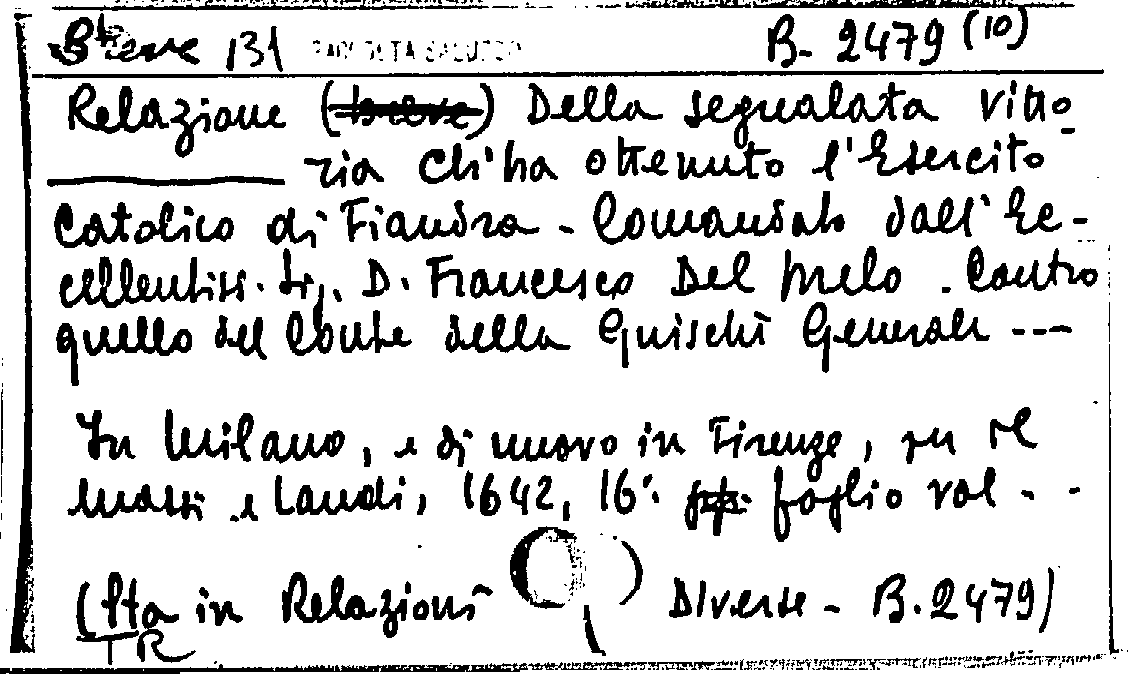 Breve 131 RACCOLTA SALUZZO B- 2479 (10)
Relazione (breve) Della segnalata vitto-
ria ch'ha ottenuto l'Esercito
Catolico di Fiandra - Comandato dall'Ec-
cellentiss. Sig. D. Francesco Del Melo - Contro
quello del Conte della Guischi Generale ---
In Milano, e di nuovo in Firenze, per il
Massi e Landi, 1642, 16° foglio vol - -
(Sta in Relazioni Diverse - B.2479)
TR